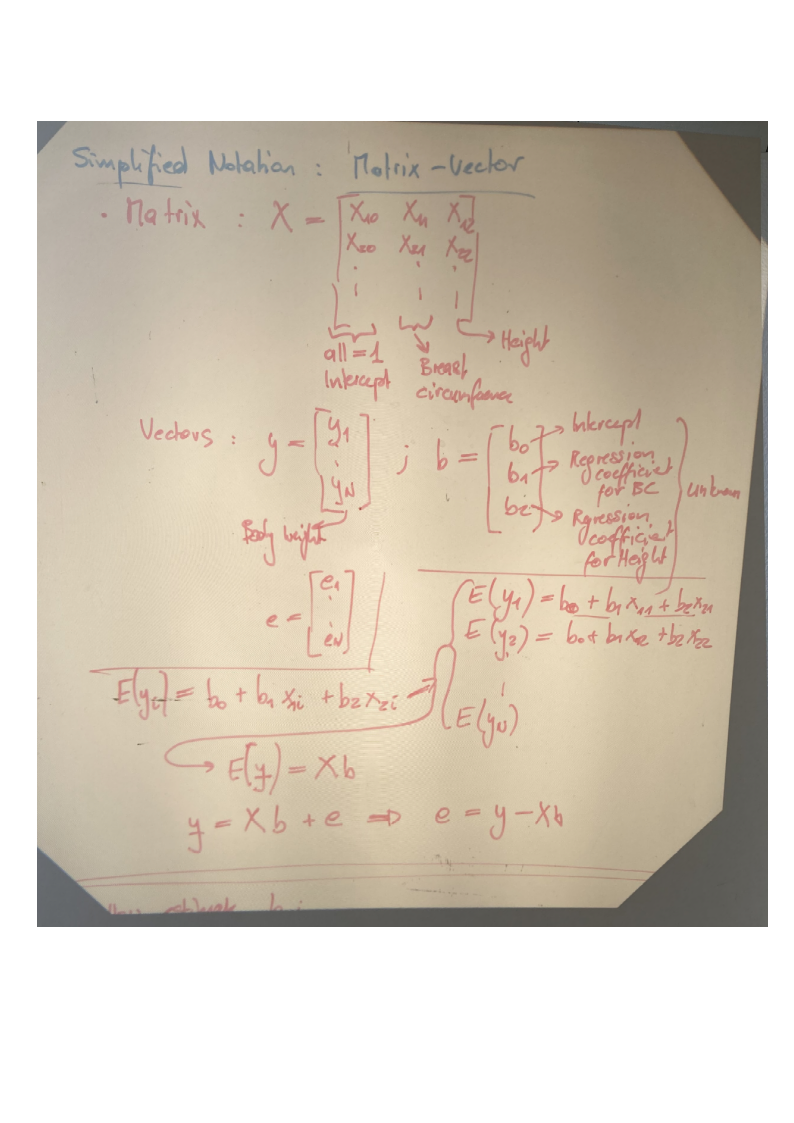 Simplified Notation : Matrix-Vector
· Matrix : X = [x10 x11 x12
x20 x21 x22
. . .
| | | ]
all = 1 Intercept
Breast circumference
→ Height
Vectors : y = [y1 . yN] ; b = [b0 b1 b2]
Body weight
→ Intercept
→ Regression coefficient for BC
→ Regression coefficient for Height
e = [e1 . eN]
E(y1) = b0 + b1 x11 + b2 x21
E(y2) = b0 + b1 x12 + b2 x22
|
E(yN)
E(yi) = b0 + b1 x1i + b2 x2i ⇒
→ E(y) = Xb
y = Xb + e ⇒ e = y - Xb